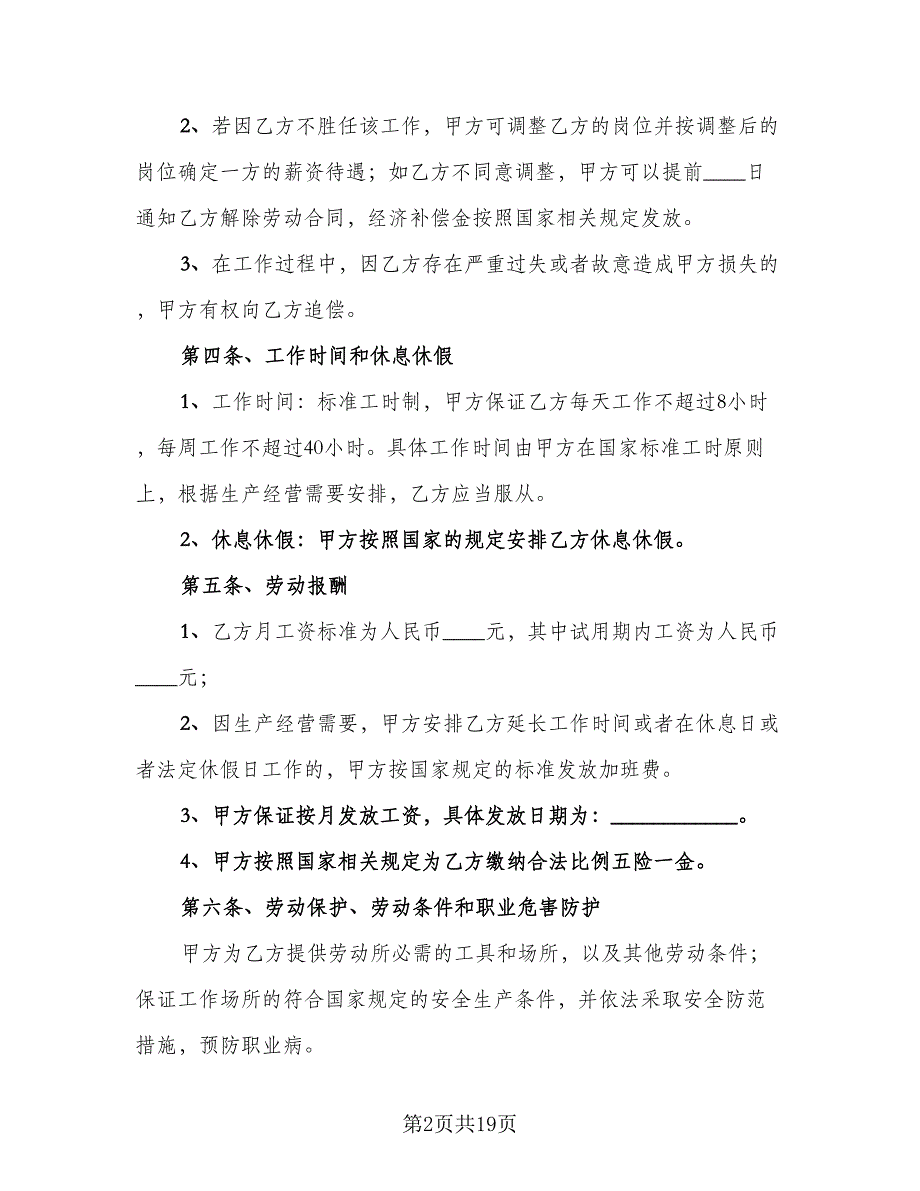 2、若因乙方不胜任该工作，甲方可调整乙方的岗位并按调整后的
岗位确定一方的薪资待遇；如乙方不同意调整，甲方可以提前____日
通知乙方解除劳动合同，经济补偿金按照国家相关规定发放。
3、在工作过程中，因乙方存在严重过失或者故意造成甲方损失的
，甲方有权向乙方追偿。
第四条、工作时间和休息休假
1、工作时间：标准工时制，甲方保证乙方每天工作不超过8小时
，每周工作不超过40小时。具体工作时间由甲方在国家标准工时原则
上，根据生产经营需要安排，乙方应当服从。
2、休息休假：甲方按照国家的规定安排乙方休息休假。
第五条、劳动报酬
1、乙方月工资标准为人民币____元，其中试用期内工资为人民币
____元；
2、因生产经营需要，甲方安排乙方延长工作时间或者在休息日或
者法定休假日工作的，甲方按国家规定的标准发放加班费。
3、甲方保证按月发放工资，具体发放日期为：____________。
4、甲方按照国家相关规定为乙方缴纳合法比例五险一金。
第六条、劳动保护、劳动条件和职业危害防护
甲方为乙方提供劳动所必需的工具和场所，以及其他劳动条件；
保证工作场所的符合国家规定的安全生产条件，并依法采取安全防范
措施，预防职业病。
第2页共19页